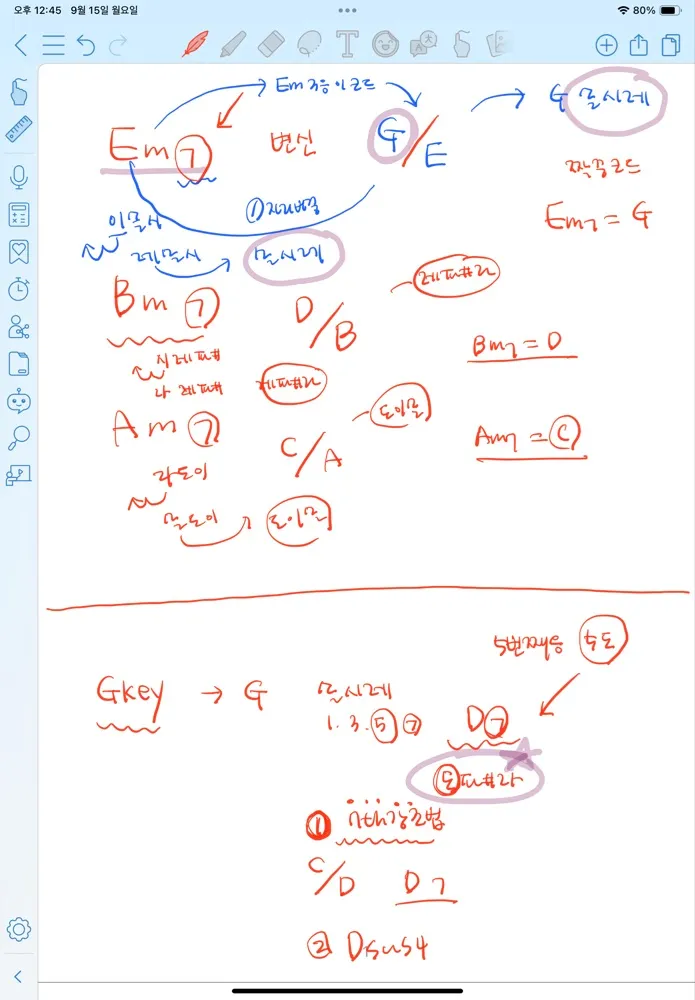 오후 12:45 9월 15일 월요일
80%
Em 3음 이 코드
Em7 변신 G/E → G 솔시레
짝꿍코드
Em7 = G
① 자리바꿈
미솔시
레솔시 솔시레
Bm7 D/B 레파#라
Bm7 = D
시레파#
라 레파# 레파#라
Am7 C/A 도미솔
Am7 = C
라도미
솔도미 도미솔
5번째음
Gkey → G 솔시레
1. 3. 5 7 D7
도파#라
① 7th강조법
C/D D7
② Dsus4